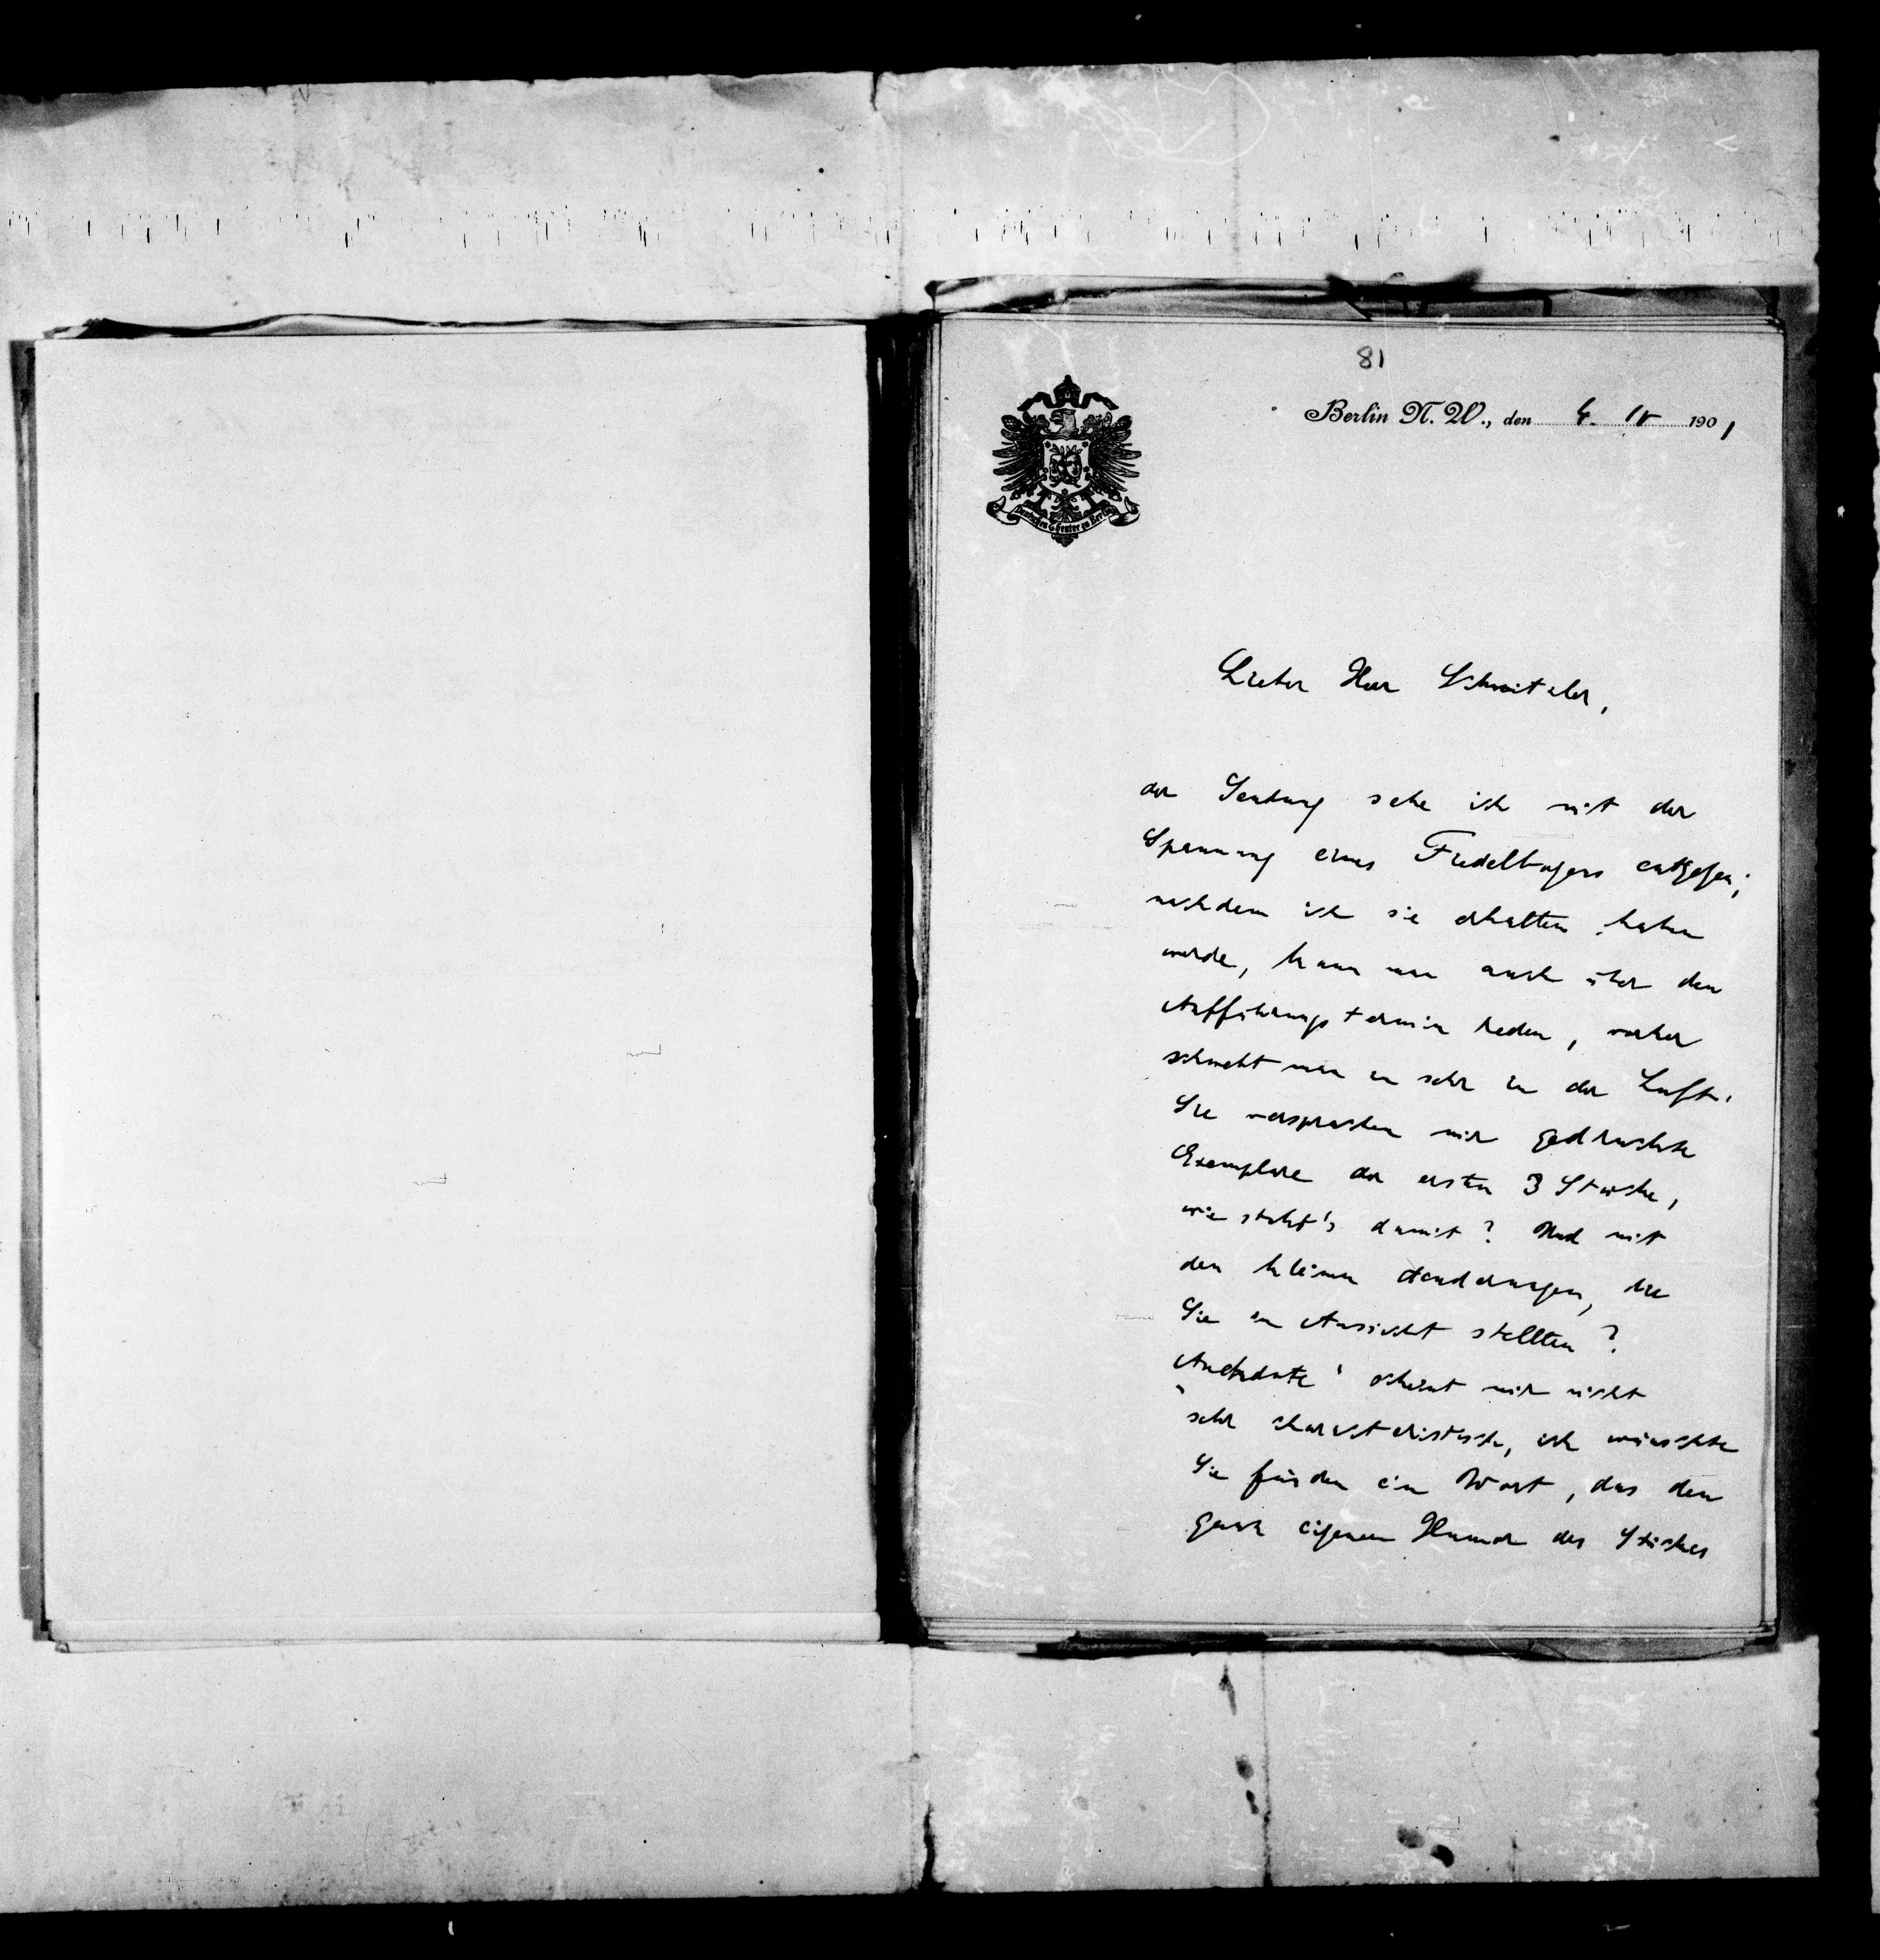 81
Berlin N. W., den 4. IV 1901
Deutsches Theater zu Berlin
Lieber Herr Schnitzler,
der Sendung sehe ich mit der
Spannung eines entgegen;
nachdem ich sie erhalten haben
werde, kann man auch über den
Aufführungstermin reden, vorher
schwebt man zu sehr in der Luft.
Sie versprachen mir gedruckte
Exemplare der ersten 3 Stücke,
wie steht's damit? Und mit
den kleinen Aenderungen, die
Sie in Aussicht stellten?
„Anekdote“ scheint mir nicht
sehr charakteristisch, ich wünschte
Sie fänden ein Wort, das den
ganz eigenen Humor des Stückes